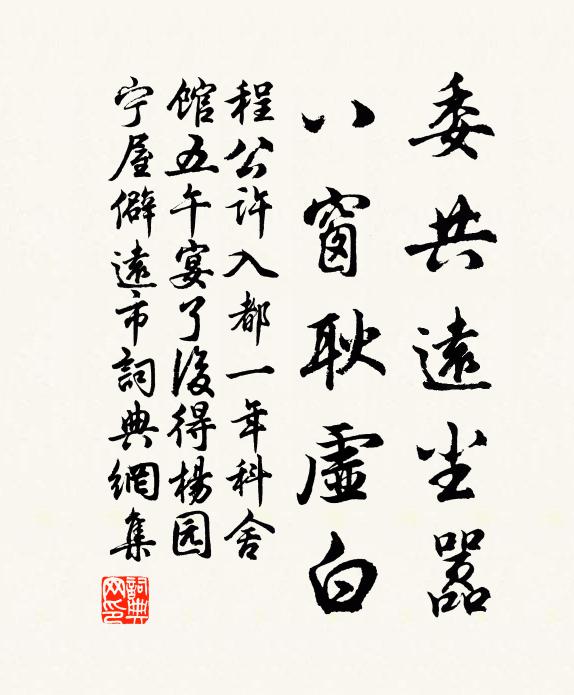 委共遠尘嚣
八窗耿虛白
程公許入都一年科舍
館五午宴了後得楊园
宁屋僻遠市詞典網集
詞典网印